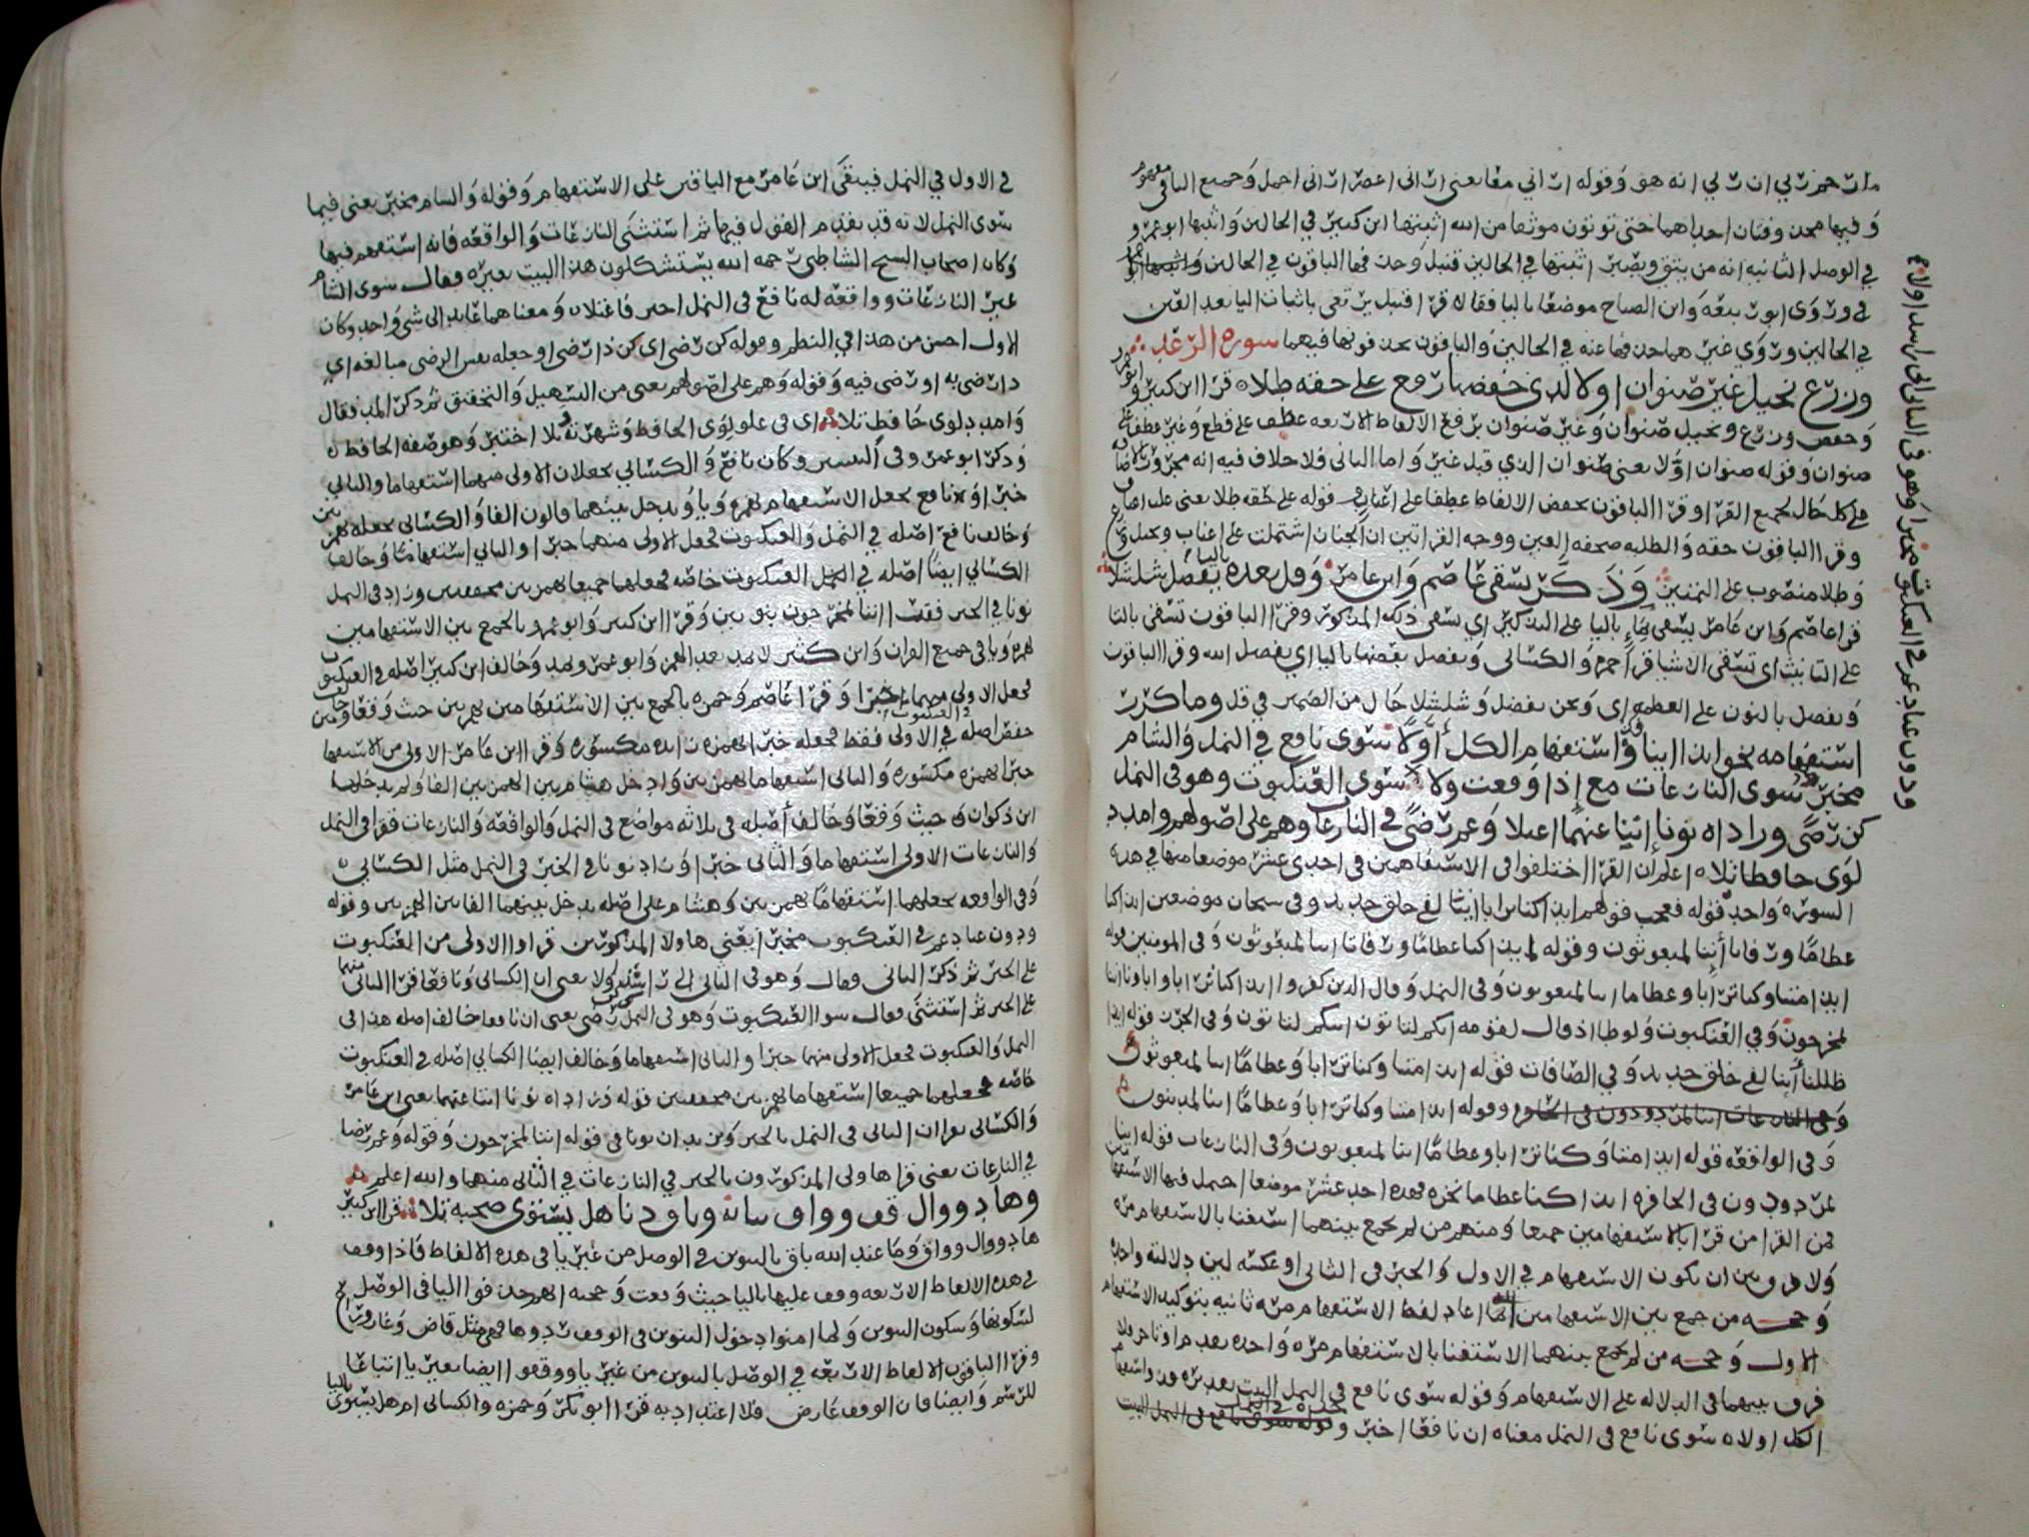 وفيها محذوفتان احداهما حتى توتون موثقا من الله اثبتها ابن كثير في الحالين واثبتها ابو عمرو
في الوصل الثانية انه من يتق ويصبر اثبتها في الحالين قنبل وحذفها الباقون في الحالين
في الحالين وروي غيرهما حذفها عنه في الحالين والباقون بحذفونها فيهما سورة الرعد
وزرع نخيل غير صنوان اولا لدى خفضها رفع على حقه طلا قرا ابن كثير وابو عمرو
وحفص وزرع ونخيل صنوان وغير صنوان برفع الالفاظ الاربعه عطف على قطع وغير عطف على
صنوان وقوله صنوان اولا يعني صنوان الذي قبل غير واما الثاني فلا خلاف فيه انه مجرور بالاضافه
على كل حال لجميع القرا وقرا الباقون بخفض الالفاظ عطفا على اعناب قوله على حقه طلا يعني على
وقرا الباقون حقه والطلبه صحفه العين ووجه القراتين ان الجنان اشتملت على اعناب ونخيل
وطلا منصوب على التمييز وذكر يسقى عاصم وابن عامر وقل بعده باليا يفضل شلشلا
قرا عاصم وابن عامر يسقى بماء باليا على التذكير اي يسقى ذلك المذكور وقرا الباقون تسقى بالتا
على التانيث اي تسقى الاشيا قرا حمزه والكسائي ويفضل بعضها باليا اي يفضل الله وقرا الباقون
ونفضل بالنون على العظمه اي ونحن نفضل وشلشلا حال من الضمير في قل وما كرر
استفهامه نحو ائذا ائنا فذو استفهام الكل اولا سوى نافع في النمل والشام
مخبر سوى النازعات مع إذا وقعت ولا سوى العنكبوت وهو في النمل
كن رضى وزاداه نونا إننا عنهما اعتلا وعم رضى في النازعات وهم على اصولهم وامدد
لوى حافظ تلا اعلم ان القرا اختلفوا في الاستفهامين في احدى عشر موضعا منها في هذه
السوره واحد قوله فعجب قولهم ائذا كنا ترابا ائنا لفي خلق جديد وفي سبحان موضعين ائذا كنا
عظاما ورفاتا أئنا لمبعوثون وقوله ائذا كنا عظاما ورفاتا ائنا لمبعوثون وفي المومنين قوله
ائذا متنا وكنا ترابا وعظاما ائنا لمبعوثون وفي النمل وقال الذين كفروا ائذا كنا ترابا واباونا ائنا
لمخرجون وفي العنكبوت ولوطا اذ قال لقومه ائنكم لتاتون ائنكم لتاتون وفي الجرز قوله ائذا
ظللنا أئنا لفي خلق جديد وفي الصافات قوله ائذا متنا وكنا ترابا وعظاما ائنا لمبعوثون
وقوله ائذا متنا وكنا ترابا وعظاما ائنا لمدينون
وفي الواقعه قوله ائذا متنا وكنا ترابا وعظاما ائنا لمبعوثون وفي النازعات قوله ائنا
لمردودون في الحافره ائذا كنا عظاما نخره فهذه احد عشر موضعا
فمن القرا من قرا بالاستفهامين جميعا ومنهم من لم يجمع بينهما استغنا بالاستفهام مره
ولا فرق بين ان يكون الاستفهام في الاول والخبر في الثاني او عكسه لين دلالته واحده
وحجه من جمع بين الاستفهامين انما اعاد لفظ الاستفهام مره ثانيه بتوكيد الاستفهام
الاول وحجه من لم يجمع بينهما الاستغنا بالاستفهام مره واحده
فرق بينهما في الدلاله على الاستفهام وقوله سوى نافع في النمل
الكل اولا سوى نافع في النمل معناه ان نافعا اخبر
ودون عناد عم في العنكبوت مخبرا وهو في الثاني اتى راشدا ولا
في الاول في النمل فيبقى ابن عامر مع الباقين على الاستفهام وقوله والشام مخبر يعني فيما
سوى النمل لانه قد تقدم القول فيها ثم استثنى النازعات والواقعه فانه استفهم فيها
وكان اصحاب الشيخ الشاطبي رحمه الله يستشكلون هذا البيت بغيره فقال سوى الشام
غير النازعات وواقعه له نافع في النمل اخبر فاعتلا ومعناهما عايد الى شي واحد وكان
الاول احسن من هذا في النظم وقوله كن رضى اي كن ذا رضى او جعله نفس الرضى مبالغه اي
وقوله وهم على اصولهم يعني من التسهيل والتحقيق ثم ذكر المد فقال
وامدد لوى حافظ تلا اي في علو لوى الحافظ وشهرته
خبرا ونافع يجعل الاستفهام بهمزه ويا ويدخل بينهما قالون الفا والكسائي يجعله
وخالف نافع اصله في النمل والعنكبوت فجعل الاولى منهما خبرا والثاني استفهاما وخالف
الكسائي ايضا اصله في النمل العنكبوت خاصه فجعلهما جميعا بهمزتين محققتين وزاد في النمل
نونا في الخبر فقرا اننا لمخرجون بنونين وقرا ابن كثير وابو عمرو بالجمع بين الاستفهامين
بهمزه ويا في جميع القران وابن كثير لا يمد بعد الهمز وابو عمرو يمد وخالف ابن كثير اصله في العنكبوت
فجعل الاولى منهما خبرا وقرا عاصم وحمزه بالجمع بين الاستفهامين بهمزتين حيث وقعا وخالف
حفص اصله في الاولى في العنكبوت فقط فجعله خبرا بهمزه واحده مكسوره وقرا ابن عامر الاولى من الاستفهامين
خبرا بهمزه مكسوره والثاني استفهاما بهمزتين وادخل هشام بين الهمزتين الفا ولم يدخلها
ابن ذكوان حيث وقعا وخالف أصله في ثلاثه مواضع في النمل والواقعه والنازعات فقرا في النمل
والنازعات الاولى استفهاما والثاني خبرا وزاد نونا في الخبر في النمل مثل الكسائي
وفي الواقعه يجعلهما استفهاما بهمزتين وهشام على اصله يدخل بينهما الفا بين الهمزتين وقوله
ودون عناد عم في العنكبوت مخبرا يعني ها ولا المذكورين قراوا الاولى من العنكبوت
على الخبر ثم ذكر الثاني وقال وهو في الثاني اتى راشدا ولا يعني ان الكسائي ونافعا قرا الثاني منهما
على الخبر ثم استثنى فقال سوا العنكبوت وهو في النمل كن رضى يعني ان نافعا خالف اصله هذا في
النمل والعنكبوت فجعل الاولى منهما خبرا والثاني استفهاما وخالف ايضا الكسائي اصله في العنكبوت
خاصه فجعلهما جميعا استفهاما بهمزتين محققتين قوله وزاداه نونا اننا عنهما يعني ابن عامر
والكسائي قراان الثاني في النمل بالخبر ويزيدان نونا في قوله اننا لمخرجون وقوله وعم رضا
في النازعات يعني قرا هاولي المذكورون بالخبر في النازعات في الثاني منهما والله اعلم
وهاد ووال قف وواق بيائه وباق دنا هل يستوى صحبة تلا قرا ابن كثير
هاد ووال وواق وما عند الله باق بالتنوين في الوصل من غير يا في هذه الالفاظ فاذا وقف
في هذه الالفاظ الاربعه وقف عليها باليا حيث وقعت وحجته انهم حذفوا اليا في الوصل
لسكونها وسكون التنوين ولما امنوا دخول التنوين في الوقف ردوها فهي مثل قاض وغاز
وقرا الباقون الالفاظ الاربعه في الوصل بالتنوين من غير يا ووقفوا ايضا بغير يا اتباعا
للرسم وايضا فان الوقف عارض فلا اعتداد به قرا ابو بكر وحمزه والكسائي ام هل يستوى